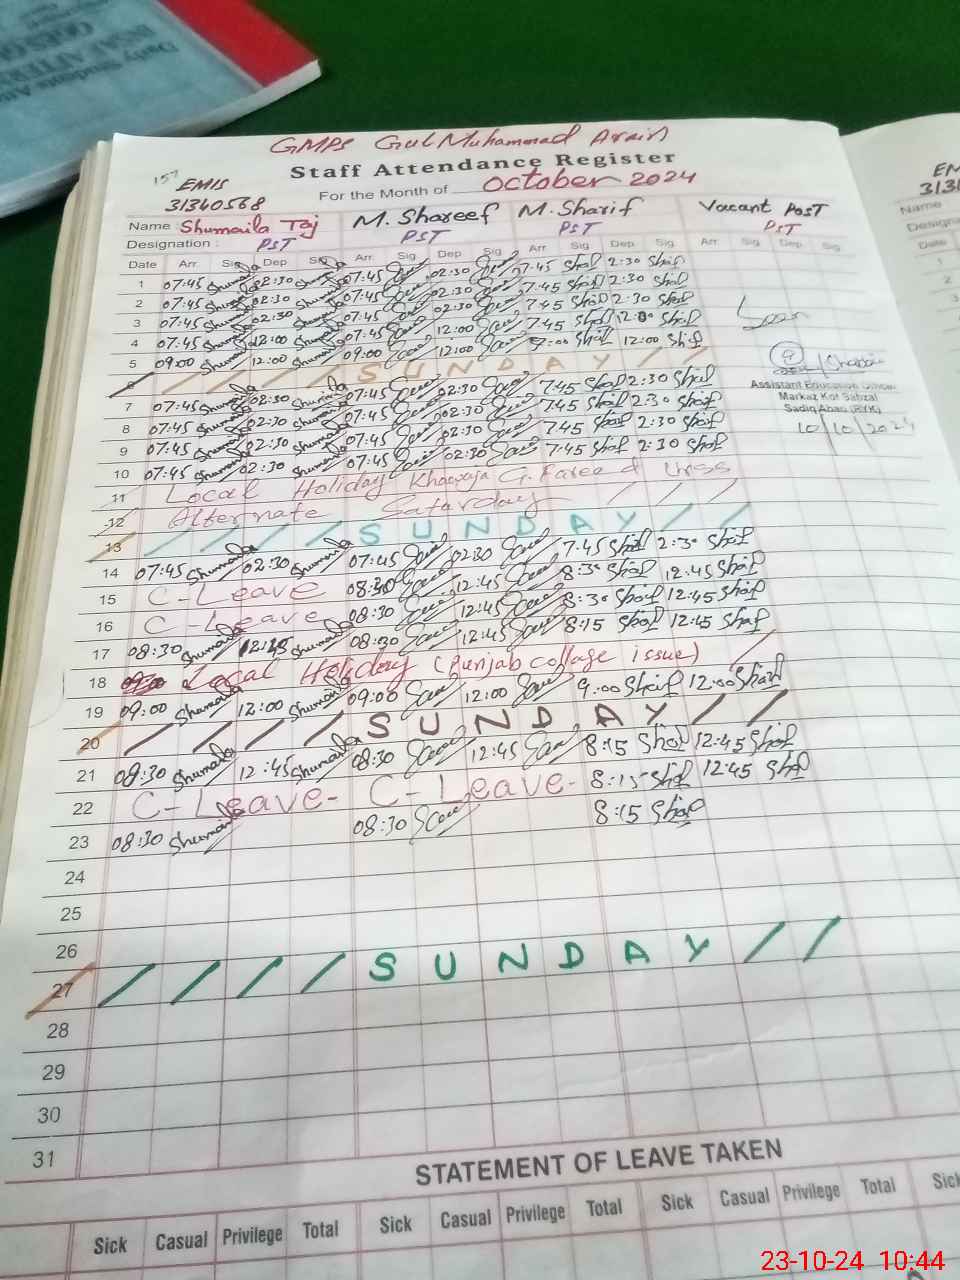 GMPS Gul Muhammad Arain
Staff Attendance Register
157 EMIS
31340568
For the Month of October 2024
Name Shumaila Taj M. Shareef M. Sharif Vacant Post
Designation : PST PST PST PST
Date Arr. Sig Dep Sig Arr. Sig Dep Sig Arr. Sig Dep Sig Arr Sig Dep Sig
1 07:45 Shumaila 02:30 Shumaila 07:45 02:30 7:45 Sharif 2:30 Sharif
2 07:45 Shumaila 02:30 Shumaila 07:45 02:30 7:45 Sharif 2:30 Sharif
3 07:45 Shumaila 02:30 Shumaila 07:45 02:30 7:45 Sharif 2:30 Sharif
4 07:45 Shumaila 12:00 Shumaila 07:45 12:00 7:45 Sharif 12:00 Sharif
5 09:00 Shumaila 12:00 Shumaila 09:00 12:00 9:00 Sharif 12:00 Sharif
6 SUNDAY
7 07:45 Shumaila 02:30 Shumaila 07:45 02:30 7:45 Sharif 2:30 Sharif
8 07:45 Shumaila 02:30 Shumaila 07:45 02:30 7:45 Sharif 2:30 Sharif
9 07:45 Shumaila 02:30 Shumaila 07:45 02:30 7:45 Sharif 2:30 Sharif
10 07:45 Shumaila 02:30 Shumaila 07:45 02:30 7:45 Sharif 2:30 Sharif
Assistant Education Officer
Markaz Kot Sabzal
Sadiq Abad (RYK)
10/10/2024
11 Local Holiday Khawaja G. Fareed Urss
12 Alternate Saturday
13 SUNDAY
14 07:45 Shumaila 02:30 Shumaila 07:45 02:30 7:45 Sharif 2:30 Sharif
15 C-Leave 08:30 12:45 8:30 Sharif 12:45 Sharif
16 C-Leave 08:30 12:45 8:30 Sharif 12:45 Sharif
17 08:30 Shumaila 12:45 Shumaila 08:30 12:45 8:15 Sharif 12:45 Sharif
18 Local Holiday (Punjab collage issue)
19 09:00 Shumaila 12:00 Shumaila 09:00 12:00 9:00 Sharif 12:00 Sharif
20 SUNDAY
21 08:30 Shumaila 12:45 Shumaila 08:30 12:45 8:15 Sharif 12:45 Sharif
22 C-Leave- C-Leave- 8:15 Sharif 12:45 Sharif
23 08:30 Shumaila 08:30 8:15 Sharif
24
25
26
27 SUNDAY
28
29
30
31
STATEMENT OF LEAVE TAKEN
Sick Casual Privilege Total Sick Casual Privilege Total Sick Casual Privilege Total Sick
23-10-24 10:44